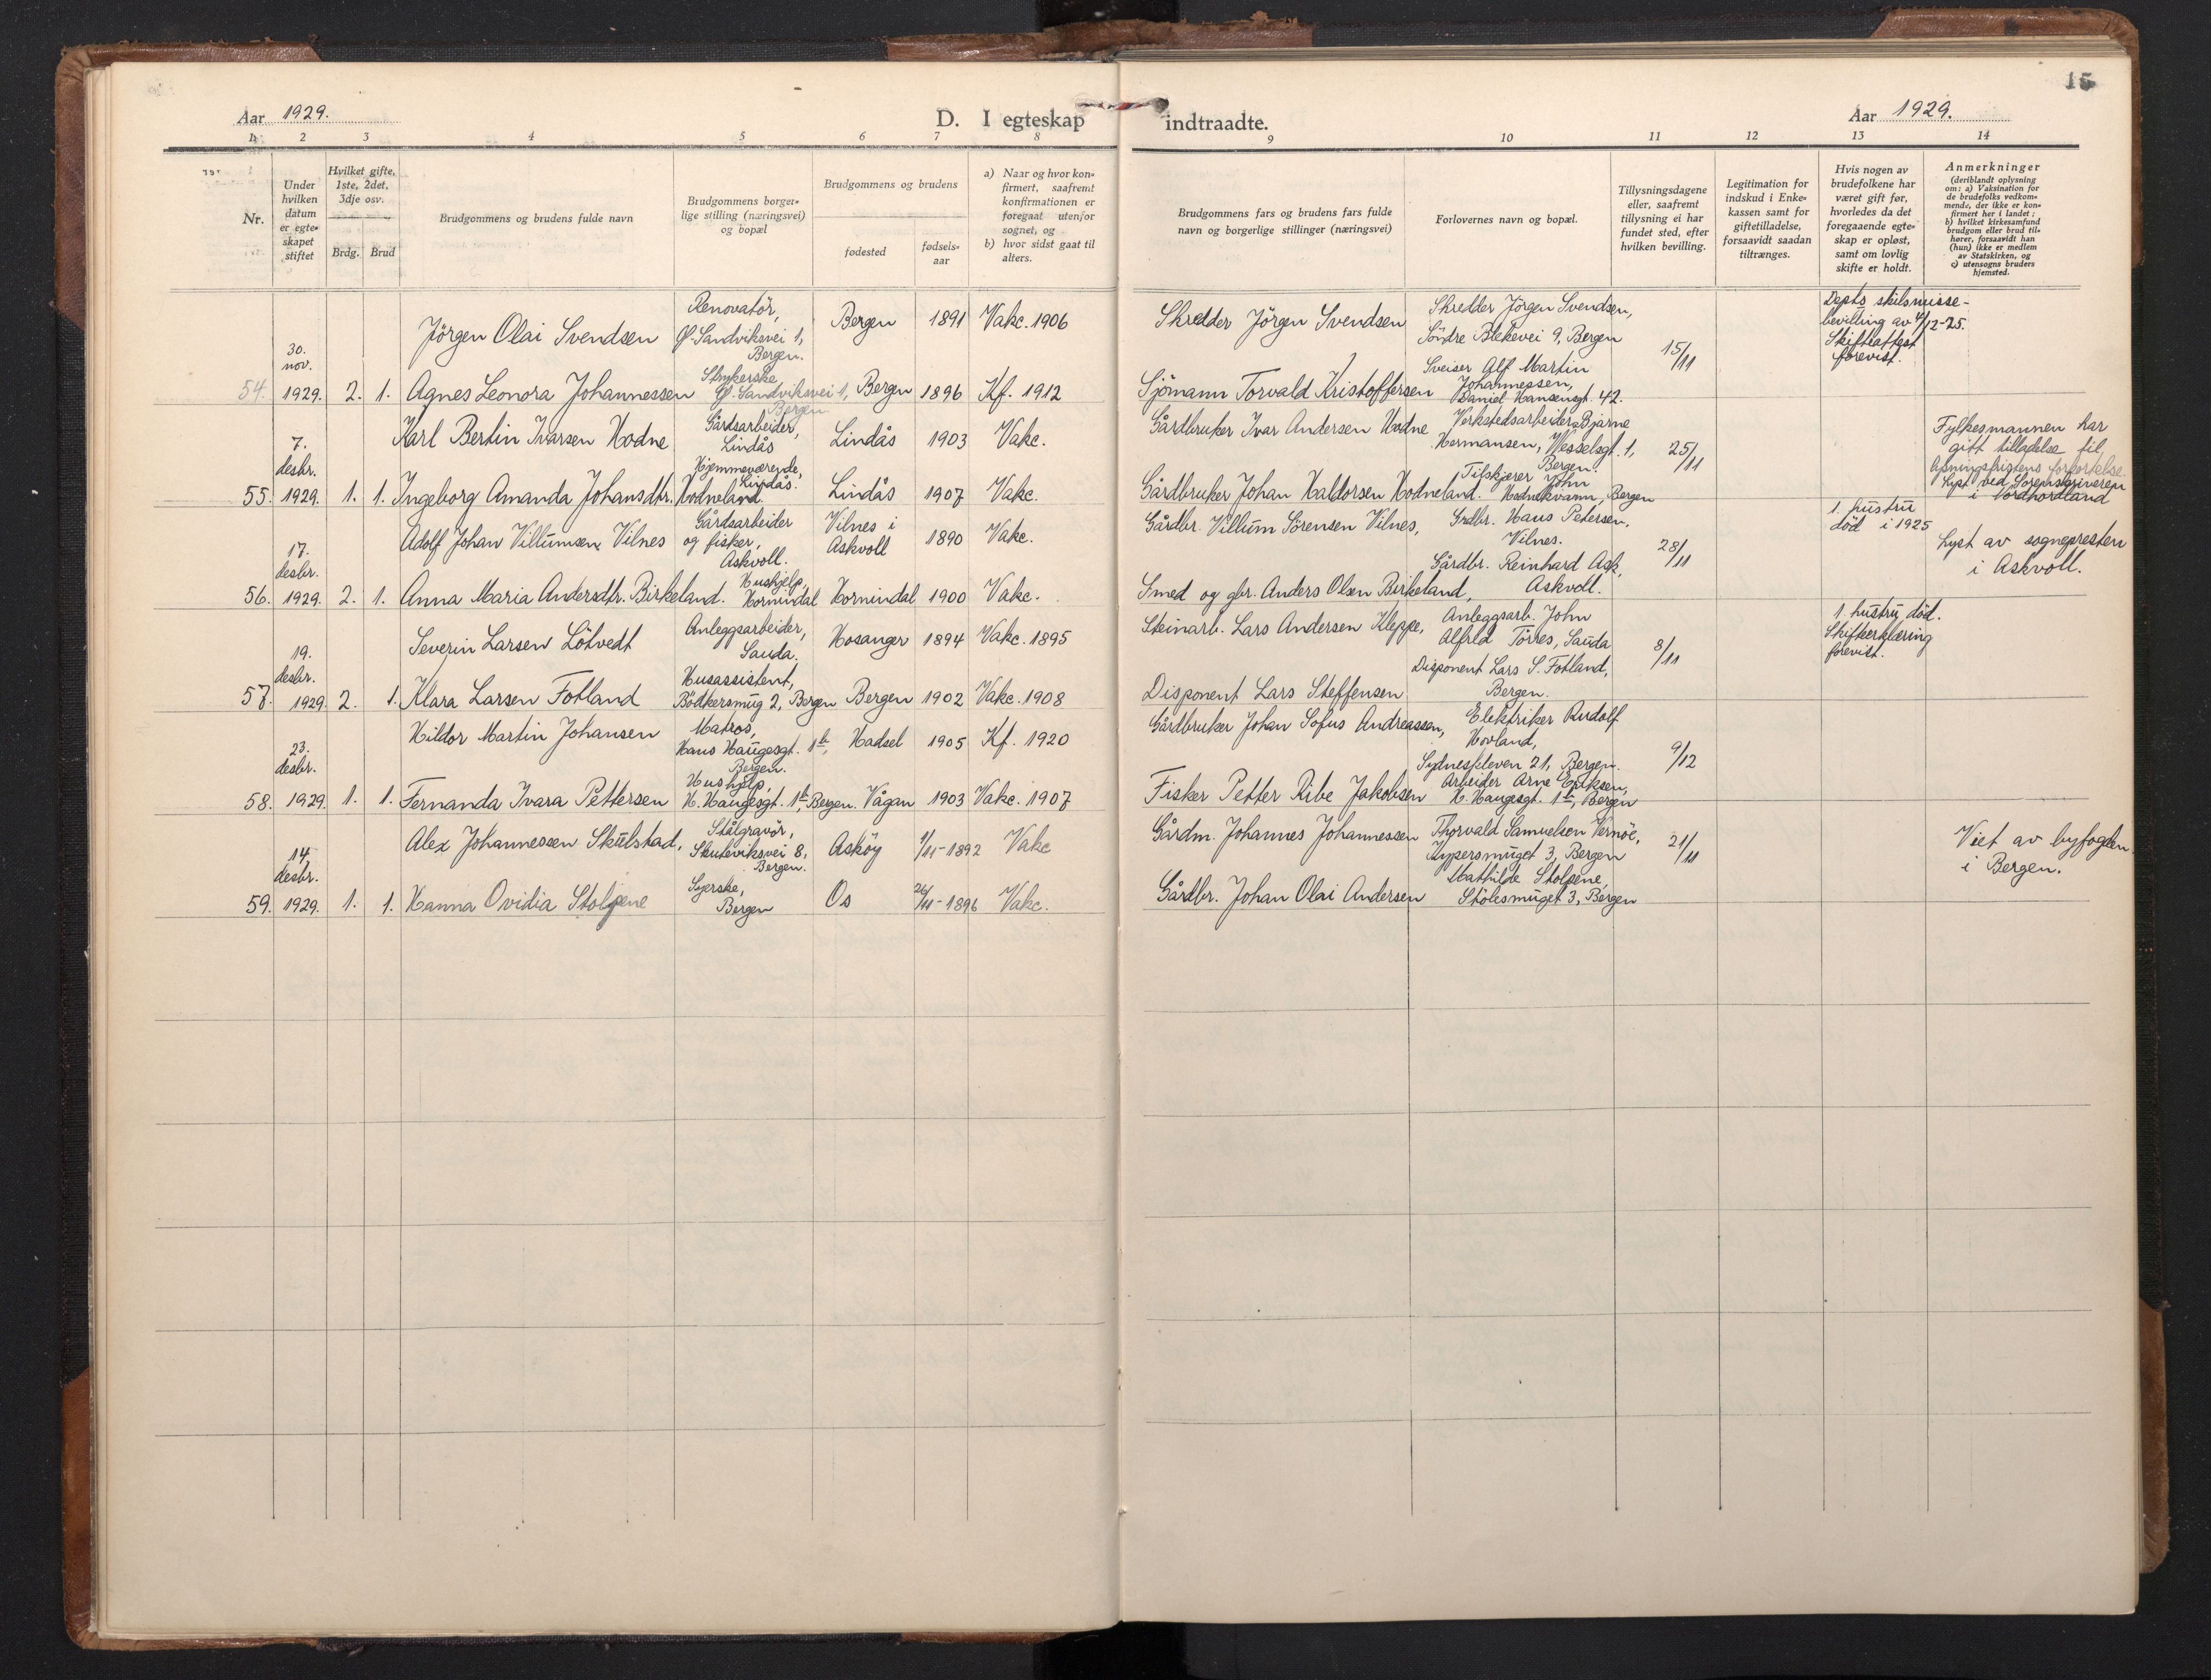 15
Aar 1929.
D. I egteskap indtraadte.
Aar 1929.
1 2 3 4 5 6 7 8 9 10 11 12 13 14
Nr.
Under
hvilken
datum
er egte-
skapet
stiftet
Hvilket gifte,
1ste, 2det,
3dje osv.
Brdg. Brud
Brudgommens og brudens fulde navn
Brudgommens borger-
lige stilling (næringsvei)
og bopæl
Brudgommens og brudens
fødested
fødsels-
aar
a) Naar og hvor kon-
firmert, saafremt
konfirmationen er
foregaat utenfor
sognet, og
b) hvor sidst gaat til
alters.
Brudgommens fars og brudens fars fulde
navn og borgerlige stillinger (næringsvei)
Forlovernes navn og bopæl.
Tillysningsdagene
eller, saafremt
tillysning ei har
fundet sted, efter
hvilken bevilling.
Legitimation for
indskud i Enke-
kassen samt for
giftetilladelse,
forsaavidt saadan
tiltrænges.
Hvis nogen av
brudefolkene har
været gift før,
hvorledes da det
foregaaende egte-
skap er opløst,
samt om lovlig
skifte er holdt.
Anmerkninger
(deriblandt oplysning
om: a) Vaksination for
de brudefolks vedkom-
mende, der ikke er kon-
firmert her i landet;
b) hvilket kirkesamfund
brudgom eller brud til-
hører, forsaavidt han
(hun) ikke er medlem
av Statskirken, og
c) utensogns bruders
hjemsted.
54. 30.
nov.
1929. 2. 1.
Jörgen Olai Svendsen
Renovatör,
Ø. Sandviksvei 1,
Bergen.
Bergen 1891 Vakc. 1906
Skredder Jörgen Svendsen
Skredder Jörgen Svendsen,
Söndre Blekevei 9, Bergen
15/11
Depts skilsmisse-
bevilling av 4/12-25.
Skifteattest
forevist.
Agnes Leonora Johannessen
Strykerske
Ø. Sandviksvei 1,
Bergen
Bergen 1896 Kf. 1912
Sjömann Torvald Kristoffersen
Sveiser Alf Martin
Johannessen,
Daniel Hansensgt. 42.
55. 7.
desbr.
1929. 1. 1.
Karl Bertin Ivarsen Hodne
Gårdsarbeider,
Lindås
Lindås 1903 Vakc.
Gårdbruker Ivar Andersen Hodne
Verkstedsarbeider Bjarne
Hermansen, Wesselsgt. 1,
Bergen.
25/11
Fylkesmannen har
gitt tilladelse til
lysningsfristens forkortelse.
Lyst ved Sorenskriveren
i Nordhordland
Ingeborg Amanda Johansdtr. Hodneland.
Hjemmeværende,
Lindås.
Lindås 1907 Vakc.
Gårdbruker Johan Haldorsen Hodneland.
Tilskjærer John
Hodnekvamn, Bergen
56. 17.
desbr.
1929. 2. 1.
Adolf Johan Villumsen Vilnes
Gårdsarbeider
og fisker,
Askvoll.
Vilnes i
Askvoll
1890 Vakc.
Gårdbr. Villum Sörensen Vilnes,
Grdbr. Hans Petersen,
Vilnes.
28/11
1. hustru
död i 1925
Lyst av sognepresten
i Askvoll.
Anna Maria Andersdtr. Birkeland.
Hushjelp,
Hornindal
Hornindal 1900 Vakc.
Smed og gbr. Anders Olsen Birkeland,
Gårdbr. Reinhard Ask,
Askvoll.
57. 19.
desbr.
1929. 2. 1.
Severin Larsen Lötvedt
Anleggsarbeider,
Sauda.
Hosanger 1894 Vakc. 1895
Steinarb. Lars Andersen Kleppe,
Anleggsarb. John
Alfred Törres, Sauda
8/11
1. hustru död.
Skifterklæring
forevist.
Klara Larsen Fotland
Husassistent,
Bödkersmug 2, Bergen
Bergen 1902 Vakc. 1908
Disponent Lars Steffensen
Disponent Lars S. Fotland,
Bergen.
58. 23.
desbr.
1929. 1. 1.
Hildor Martin Johansen
Matros,
Hans Haugesgt. 1b,
Bergen.
Hadsel 1905 Kf. 1920
Gårdbruker Johan Sofus Andreassen,
Elektriker Rudolf
Hovland,
Sydneskleven 21, Bergen.
9/12
Fernanda Ivara Pettersen
Hushjelp,
H. Haugesgt. 1b, Bergen.
Vågan 1903 Vakc. 1907
Fisker Petter Ribe Jakobsen
Arbeider Arne Eriksen,
H. Haugesgt. 1b, Bergen
59. 14.
desbr.
1929. 1. 1.
Alex Johannessen Skulstad,
Stålgravör,
Skuteviksvei 8,
Bergen.
Asköy 1/11-1892 Vakc
Gårdm. Johannes Johannessen
Thorvald Samuelsen Vernöe,
Kypersmuget 3, Bergen
21/11
Viet av byfogden
i Bergen.
Hanna Ovidia Stolpene
Syerske,
Bergen
Os 26/11-1896 Vakc.
Gårdbr. Johan Olai Andersen
Mathilde Stolpene
Stölesmuget 3, Bergen